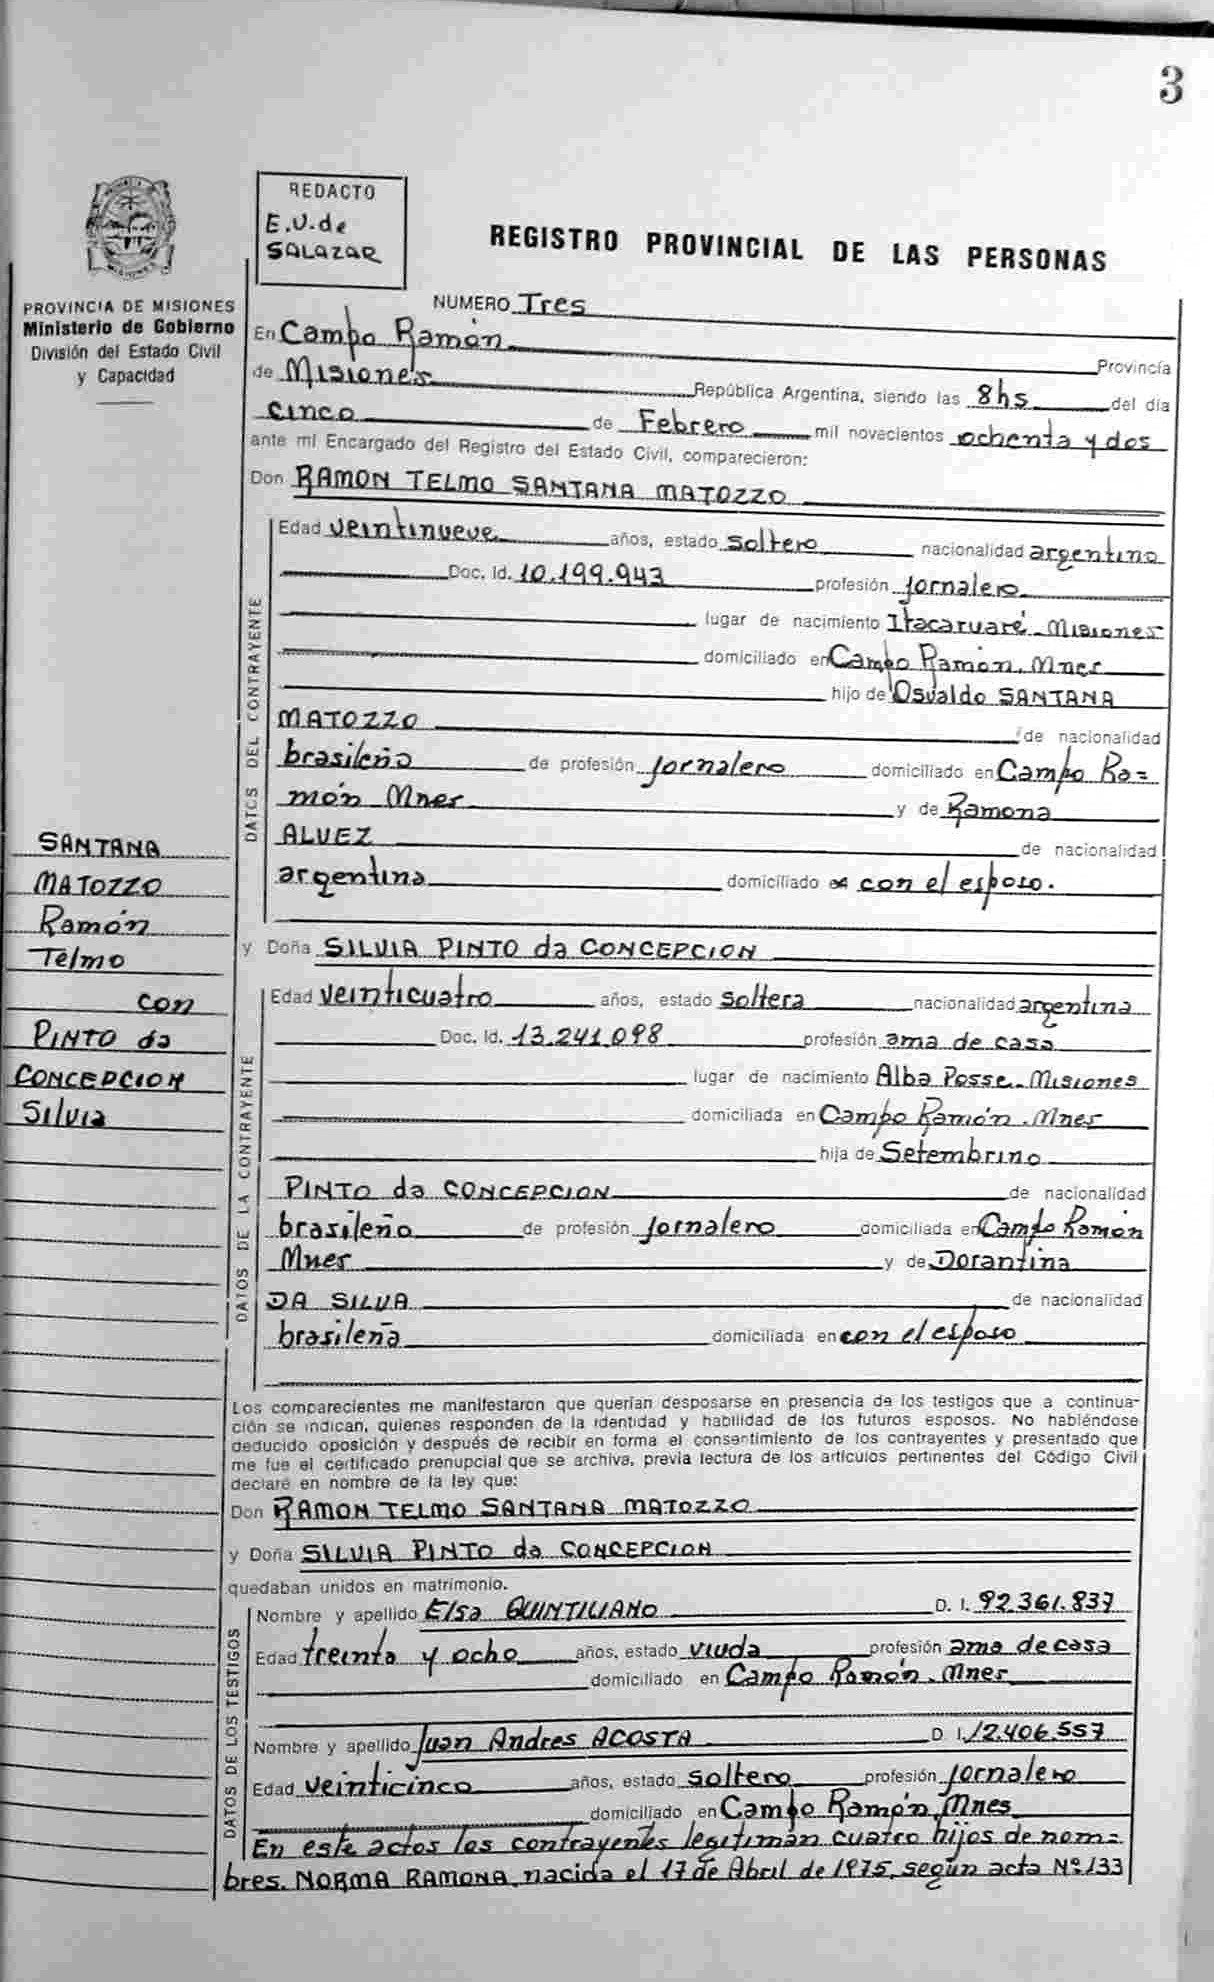 3
REDACTO
E.V. de
SALAZAR
REGISTRO PROVINCIAL DE LAS PERSONAS
PROVINCIA DE MISIONES
Ministerio de Gobierno
División del Estado Civil
y Capacidad
NUMERO Tres
En Campo Ramón Provincia
de Misiones República Argentina, siendo las 8hs del día
cinco de Febrero mil novecientos ochenta y dos
ante mí Encargado del Registro del Estado Civil, comparecieron:
Don RAMON TELMO SANTANA MATOZZO
DATOS DEL CONTRAYENTE
Edad veintinueve años, estado soltero nacionalidad argentino
Doc. Id. 10.199.943 profesión jornalero
lugar de nacimiento Itacaruaré - Misiones
domiciliado en Campo Ramón. Mnes
hijo de Osvaldo SANTANA
MATOZZO de nacionalidad
brasileño de profesión jornalero domiciliado en Campo Ra=
món Mnes y de Ramona
ALVEZ de nacionalidad
argentina domiciliado con el esposo.
SANTANA
MATOZZO
Ramón
Telmo
con
PINTO da
CONCEPCION
Silvia
y Doña SILVIA PINTO da CONCEPCION
DATOS DE LA CONTRAYENTE
Edad veinticuatro años, estado soltera nacionalidad argentina
Doc. Id. 13.241.098 profesión ama de casa
lugar de nacimiento Alba Posse - Misiones
domiciliada en Campo Ramón. Mnes
hija de Setembrino
PINTO da CONCEPCION de nacionalidad
brasileño de profesión jornalero domiciliada en Campo Ramón
Mnes y de Dorantina
DA SILVA de nacionalidad
brasileña domiciliada en con el esposo
Los comparecientes me manifestaron que querían desposarse en presencia de los testigos que a continua-
ción se indican, quienes responden de la identidad y habilidad de los futuros esposos. No habiéndose
deducido oposición y después de recibir en forma el consentimiento de los contrayentes y presentado que
me fue el certificado prenupcial que se archiva, previa lectura de los artículos pertinentes del Código Civil
declaré en nombre de la ley que:
Don RAMON TELMO SANTANA MATOZZO
y Doña SILVIA PINTO da CONCEPCION
quedaban unidos en matrimonio.
DATOS DE LOS TESTIGOS
Nombre y apellido Elsa QUINTILIANO D. I. 92.361.837
Edad treinta y ocho años, estado viuda profesión ama de casa
domiciliado en Campo Ramón. Mnes
Nombre y apellido Juan Andres ACOSTA D. I. 12.406.557
Edad veinticinco años, estado soltero profesión jornalero
domiciliado en Campo Ramón, Mnes
En este actos los contrayentes legitiman cuatro hijos de nom=
bres. NORMA RAMONA, nacida el 17 de Abril de 1975, según acta Nº 133